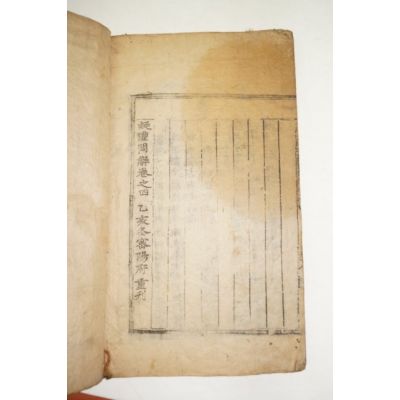 疑禮問解卷之四 乙亥冬密陽府重刊